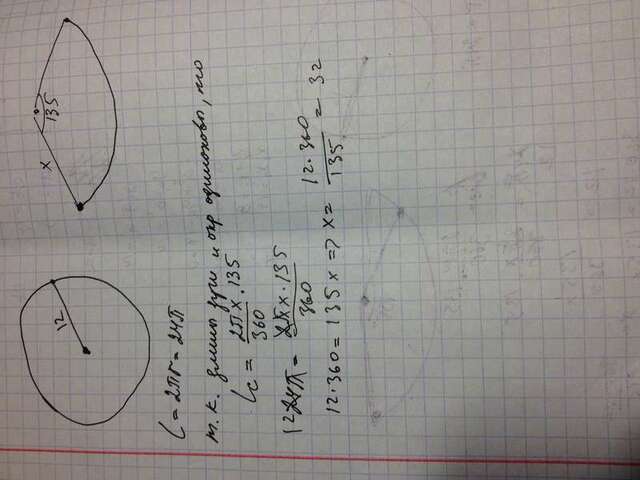 12
x
135°
L = 2πr = 24π
т.к. длины дуги и окр одинаковы, то
Lc = 2πx·135 / 360
12 24π = 2πx·135 / 360
12·360 = 135x => x = 12·360 / 135 = 32